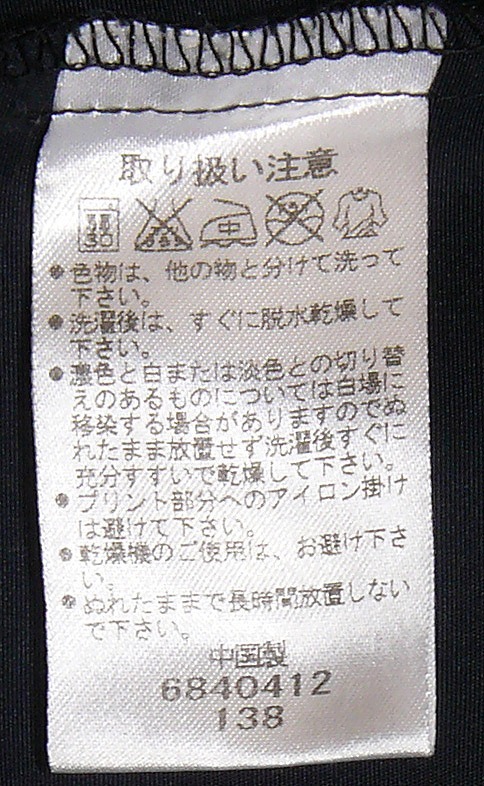 取り扱い注意
中
●色物は、他の物と分けて洗って
下さい。
●洗濯後は、すぐに脱水乾燥して
下さい。
●濃色と白または淡色との切り替
えのあるものについては白場に
移染する場合がありますのでぬ
れたまま放置せず洗濯後すぐに
充分すすいで乾燥して下さい。
●プリント部分へのアイロン掛け
は避けて下さい。
●乾燥機のご使用は、お避け下さ
い。
●ぬれたままで長時間放置しない
で下さい。
中国製
6840412
138